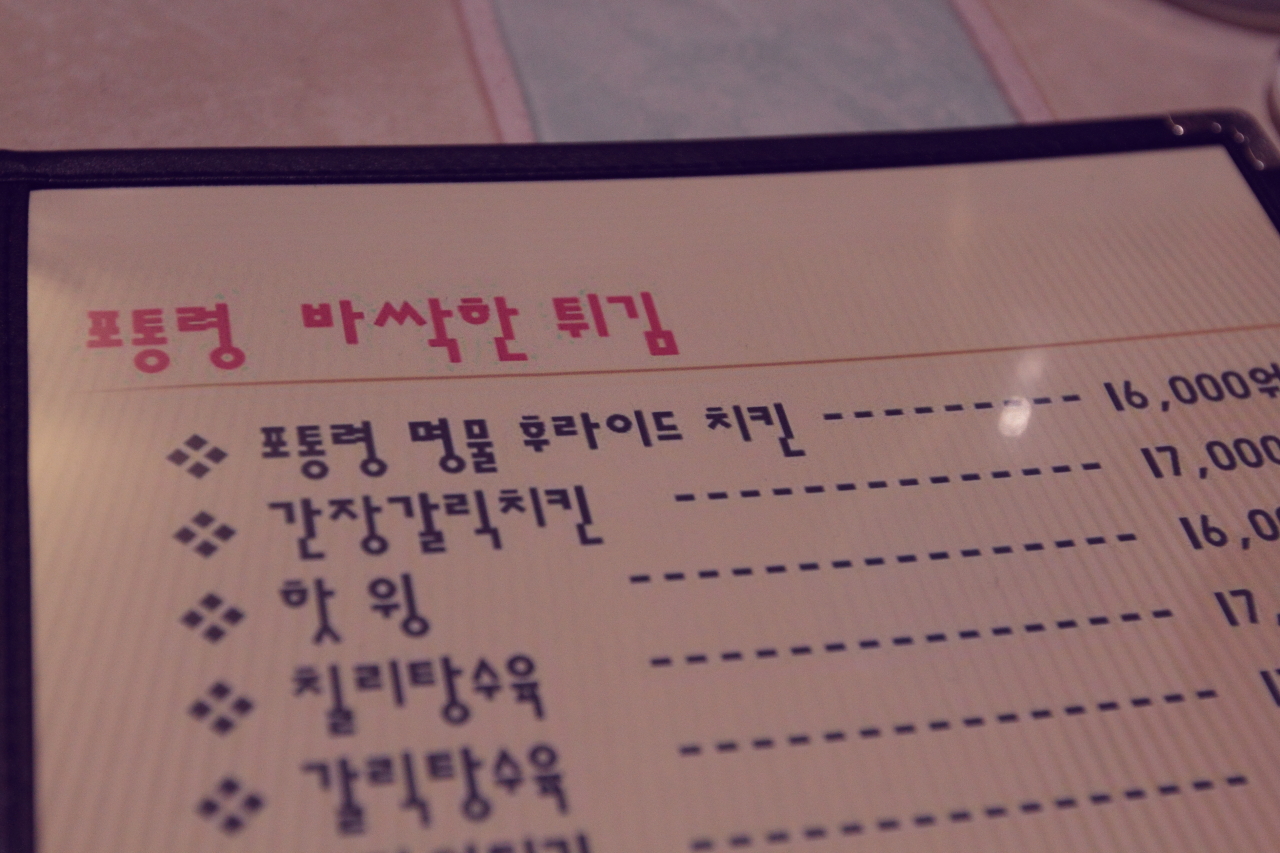 포통령 바싹한 튀김
포통령 명물 후라이드 치킨 ---------- 16,000원
간장갈릭치킨 ------------- 17,000
핫 윙 --------------- 16,0
칠리탕수육 ---------------- 17,
갈릭탕수육 ----------------